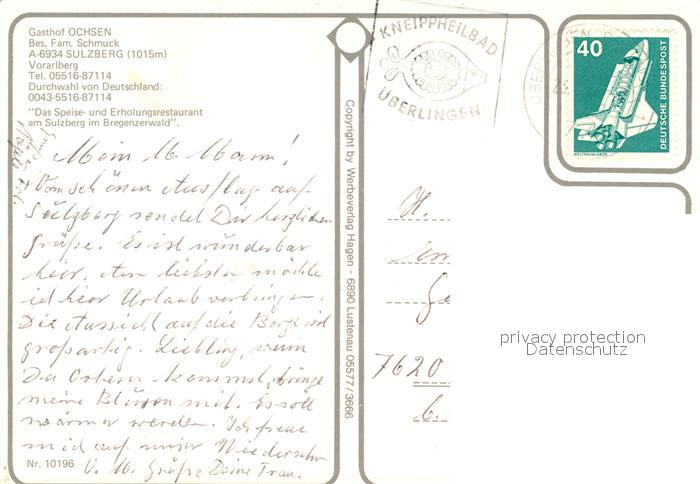 Gasthof OCHSEN
Bes. Fam. Schmuck
A-6934 SULZBERG (1015m)
Vorarlberg
Tel. 05516-87114
Durchwahl von Deutschland:
0043-5516-87114
"Das Speise- und Erholungsrestaurant
am Sulzberg im Bregenzerwald".
Mein lb. Mann!
Vom schönen Ausflug auf
Sulzberg sendet Dir herzlichen
Grüße. Es ist wunderbar
hier. Am liebsten möchte
ich hier Urlaub verbringen.
Die Aussicht auf die Berge ist
großartig. Liebling, wenn
Du Ostern kommst, bringe
meine Blusen mit. Es soll
wärmer werden. Ich freue
mich auf unser Wiedersehn
Grüße Deine Frau.
Nr. 10196
Copyright by Werbeverlag Hagen - 6890 Lustenau 05577/3666
KNEIPPHEILBAD
ÜBERLINGEN
40
DEUTSCHE BUNDESPOST
WELTRAUMLABOR
H.
7620
privacy protection
Datenschutz